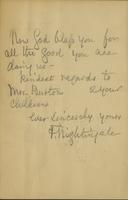 Now God bless you for
all the good you are
doing us -
kindest regards to
Mrs. Burton & your
children
ever sincerely yours
F. Nightingale